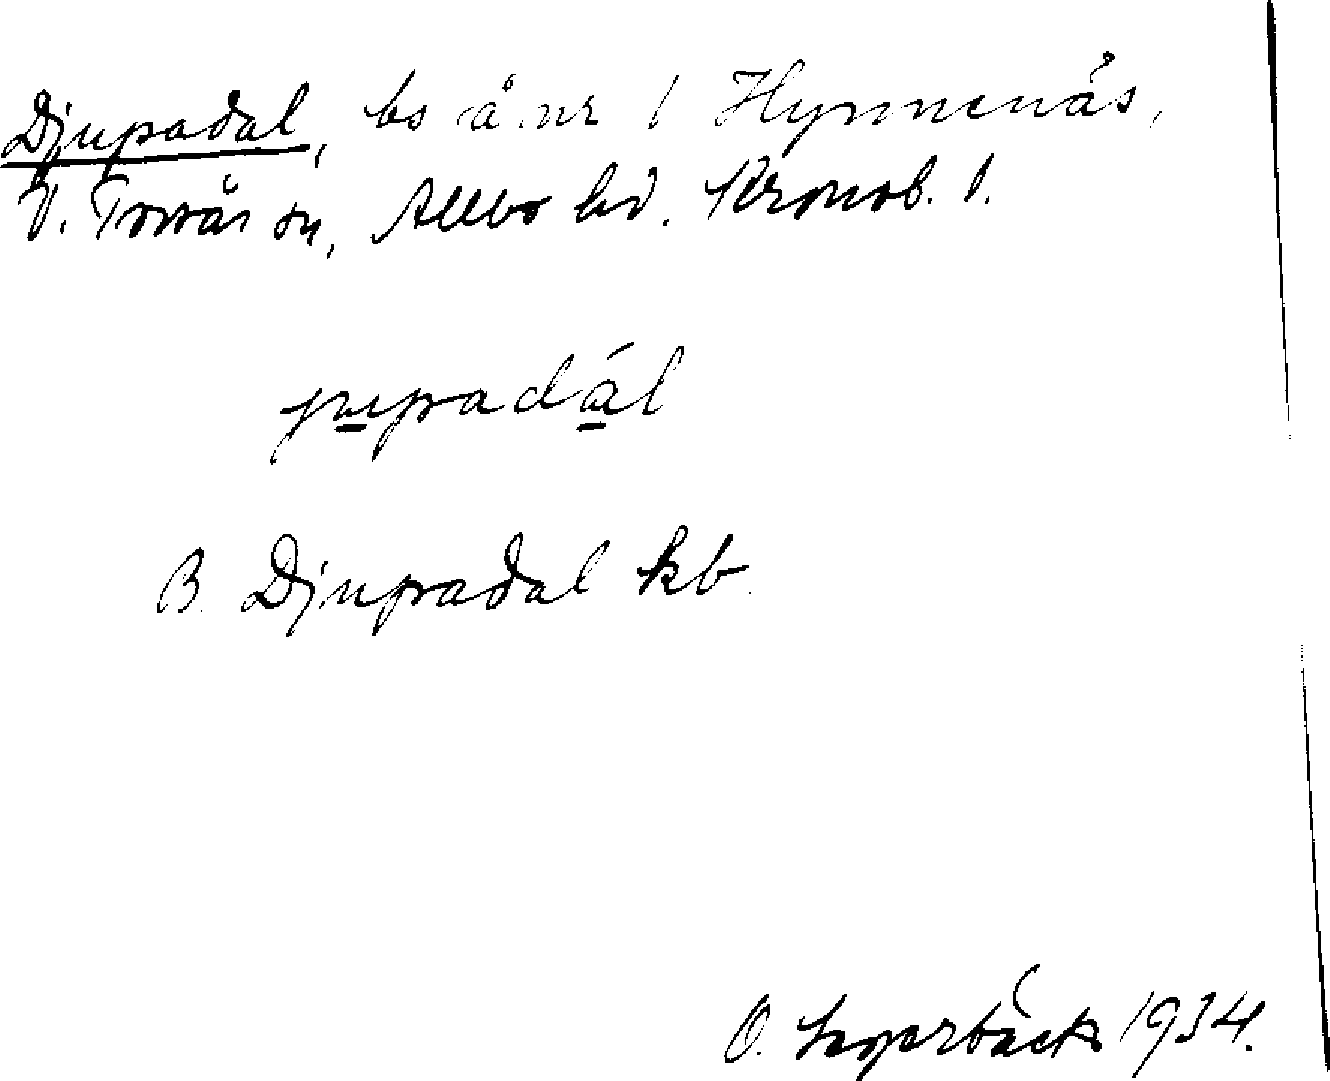 Djupadal, bs å nr 1 Hymnenäs,
V. Torsås sn, Allbo hd. Kronob. l.
jupadál
B. Djupadal kb.
O. 1934.